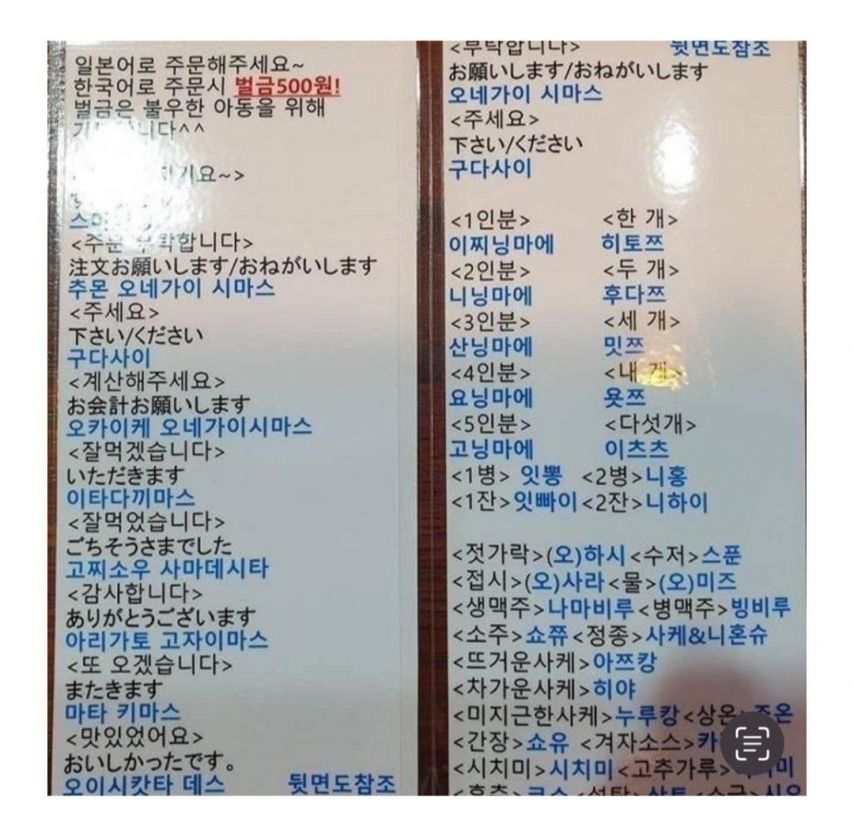 일본어로 주문해주세요~
한국어로 주문시 벌금500원!
벌금은 불우한 아동을 위해
니다^^
기요~>
<주문 부탁합니다>
注文お願いします/おねがいします
추몬 오네가이 시마스
<주세요>
下さい/ください
구다사이
<계산해주세요>
お会計お願いします
오카이케 오네가이시마스
<잘먹겠습니다>
いただきます
이타다끼마스
<잘먹었습니다>
ごちそうさまでした
고찌소우 사마데시타
<감사합니다>
ありがとうございます
아리가토 고자이마스
<또 오겠습니다>
またきます
마타 키마스
<맛있었어요>
おいしかったです。
오이시캇타 데스 뒷면도참조
<부탁합니다> 뒷면도참조
お願いします/おねがいします
오네가이 시마스
<주세요>
下さい/ください
구다사이
<1인분> <한 개>
이찌닝마에 히토쯔
<2인분> <두 개>
니닝마에 후다쯔
<3인분> <세 개>
산닝마에 밋쯔
<4인분> <내 개>
요닝마에 욧쯔
<5인분> <다섯개>
고닝마에 이츠츠
<1병> 잇뽕 <2병>니홍
<1잔>잇빠이<2잔>니하이
<젓가락>(오)하시<수저>스푼
<접시>(오)사라<물>(오)미즈
<생맥주>나마비루<병맥주>빙비루
<소주>쇼쮸<정종>사케&니혼슈
<뜨거운사케>아쯔캉
<차가운사케>히야
<미지근한사케>누루캉<상온>죠온
<간장>쇼유 <겨자소스>카
<시치미>시치미<고추가루>미